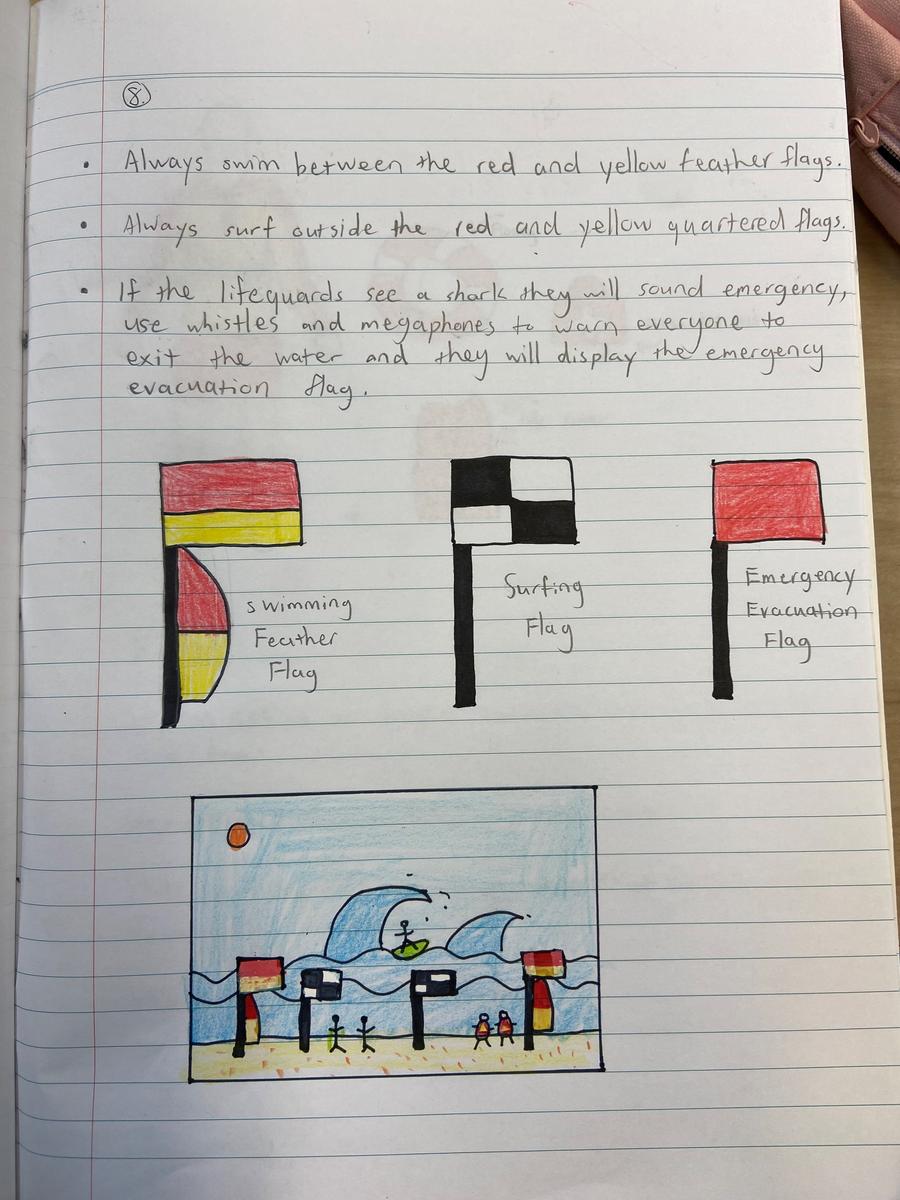 8.
• Always swim between the red and yellow feather flags.
• Always surf outside the red and yellow quartered flags.
• If the lifeguards see a shark they will sound emergency,
use whistles and megaphones to warn everyone to
exit the water and they will display the emergency
evacuation flag.
swimming
Feather
Flag
Surfing
Flag
Emergency
Evacuation
Flag